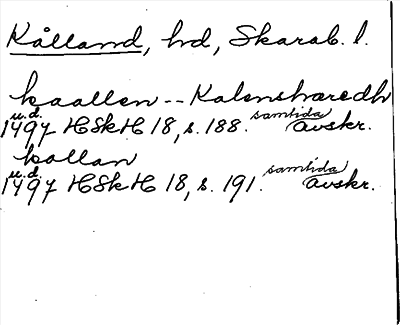 Kålland, hd, Skarab. l.
kaallen -- Kalenshæredh
u.d.
1497 HSkH 18, s. 188. samtida avskr.
kollan
u.d.
1497 HSkH 18, s. 191. samtida avskr.